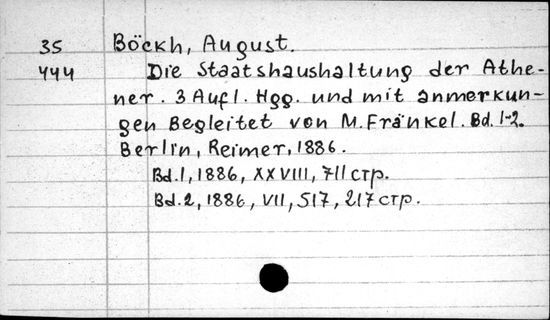 35 Böckh, August.
444 Die Staatshaushaltung der Athe-
ner. 3 Aufl. Hgg. und mit anmerkun-
gen Begleitet von M. Fränkel. Bd. 1-2.
Berlin, Reimer, 1886.
Bd. 1, 1886, XXVIII, 711 стр.
Bd. 2, 1886, VII, 517, 217 стр.